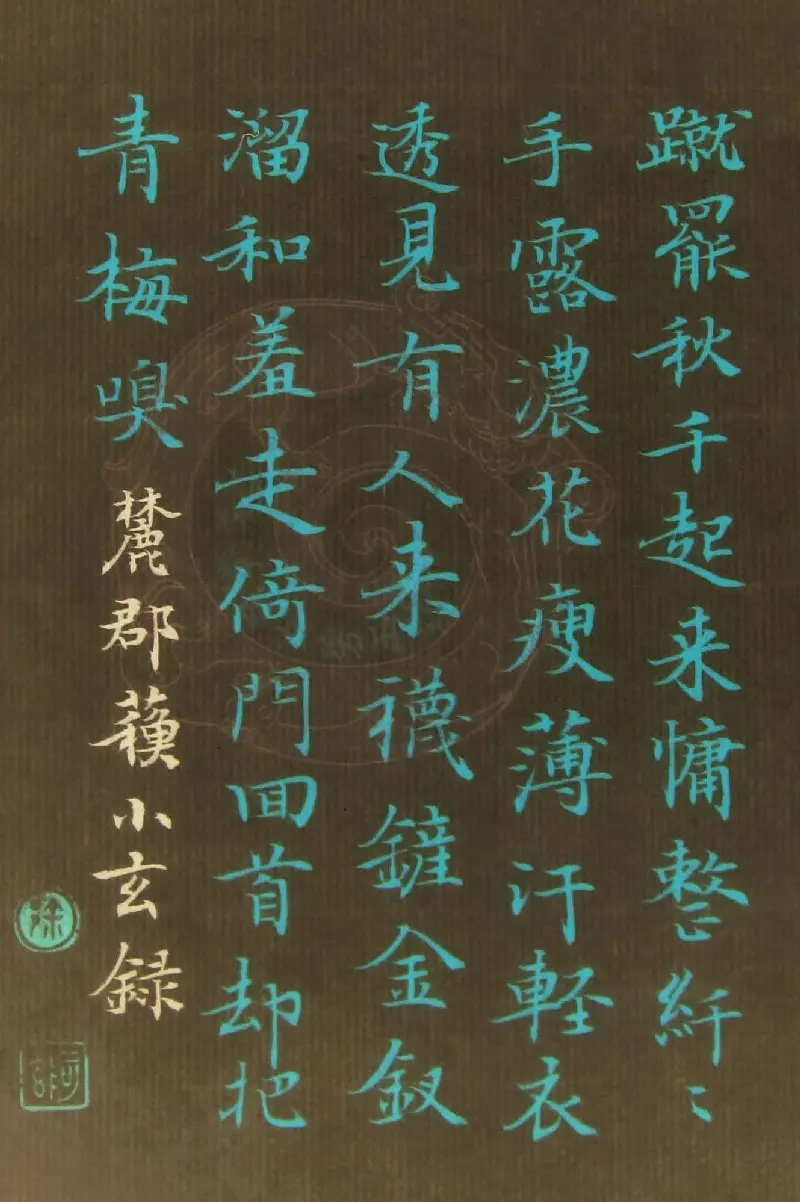 蹴罷秋千起来慵整纤〻
手露濃花瘦薄汗軽衣
透見有人来襪鏟金釵
溜和羞走倚門回首却把
青梅嗅麓郡蘋小玄録